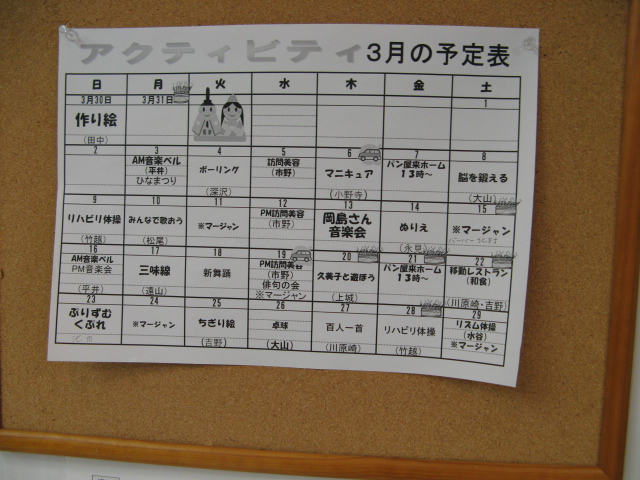 アクティビティ 3月の予定表
日 月 火 水 木 金 土
3月30日 3月31日 1
作り絵
(田中)
2 3 4 5 6 7 8
AM音楽ベル
(平井)
ひなまつり
ボーリング
(深沢)
訪問美容
(市野)
マニキュア
(小野寺)
パン屋来ホーム
13時〜
脳を鍛える
(大山)
9 10 11 12 13 14 15
リハビリ体操
(竹越)
みんなで歌おう
(松尾)
※マージャン
PM訪問美容
(市野)
岡島さん
音楽会
ぬりえ
(永見)
※マージャン
16 17 18 19 20 21 22
AM音楽ベル
PM音楽会
(平井)
三味線
(遠山)
新舞踊
PM訪問美容
(市野)
俳句の会
※マージャン
久美子と遊ぼう
(上城)
パン屋来ホーム
13時〜
移動レストラン
(和食)
(川原崎・吉野)
23 24 25 26 27 28 29
ぷりずむ
くぷれ
※マージャン
ちぎり絵
(吉野)
卓球
(大山)
百人一首
(川原崎)
リハビリ体操
(竹越)
リズム体操
(水谷)
※マージャン